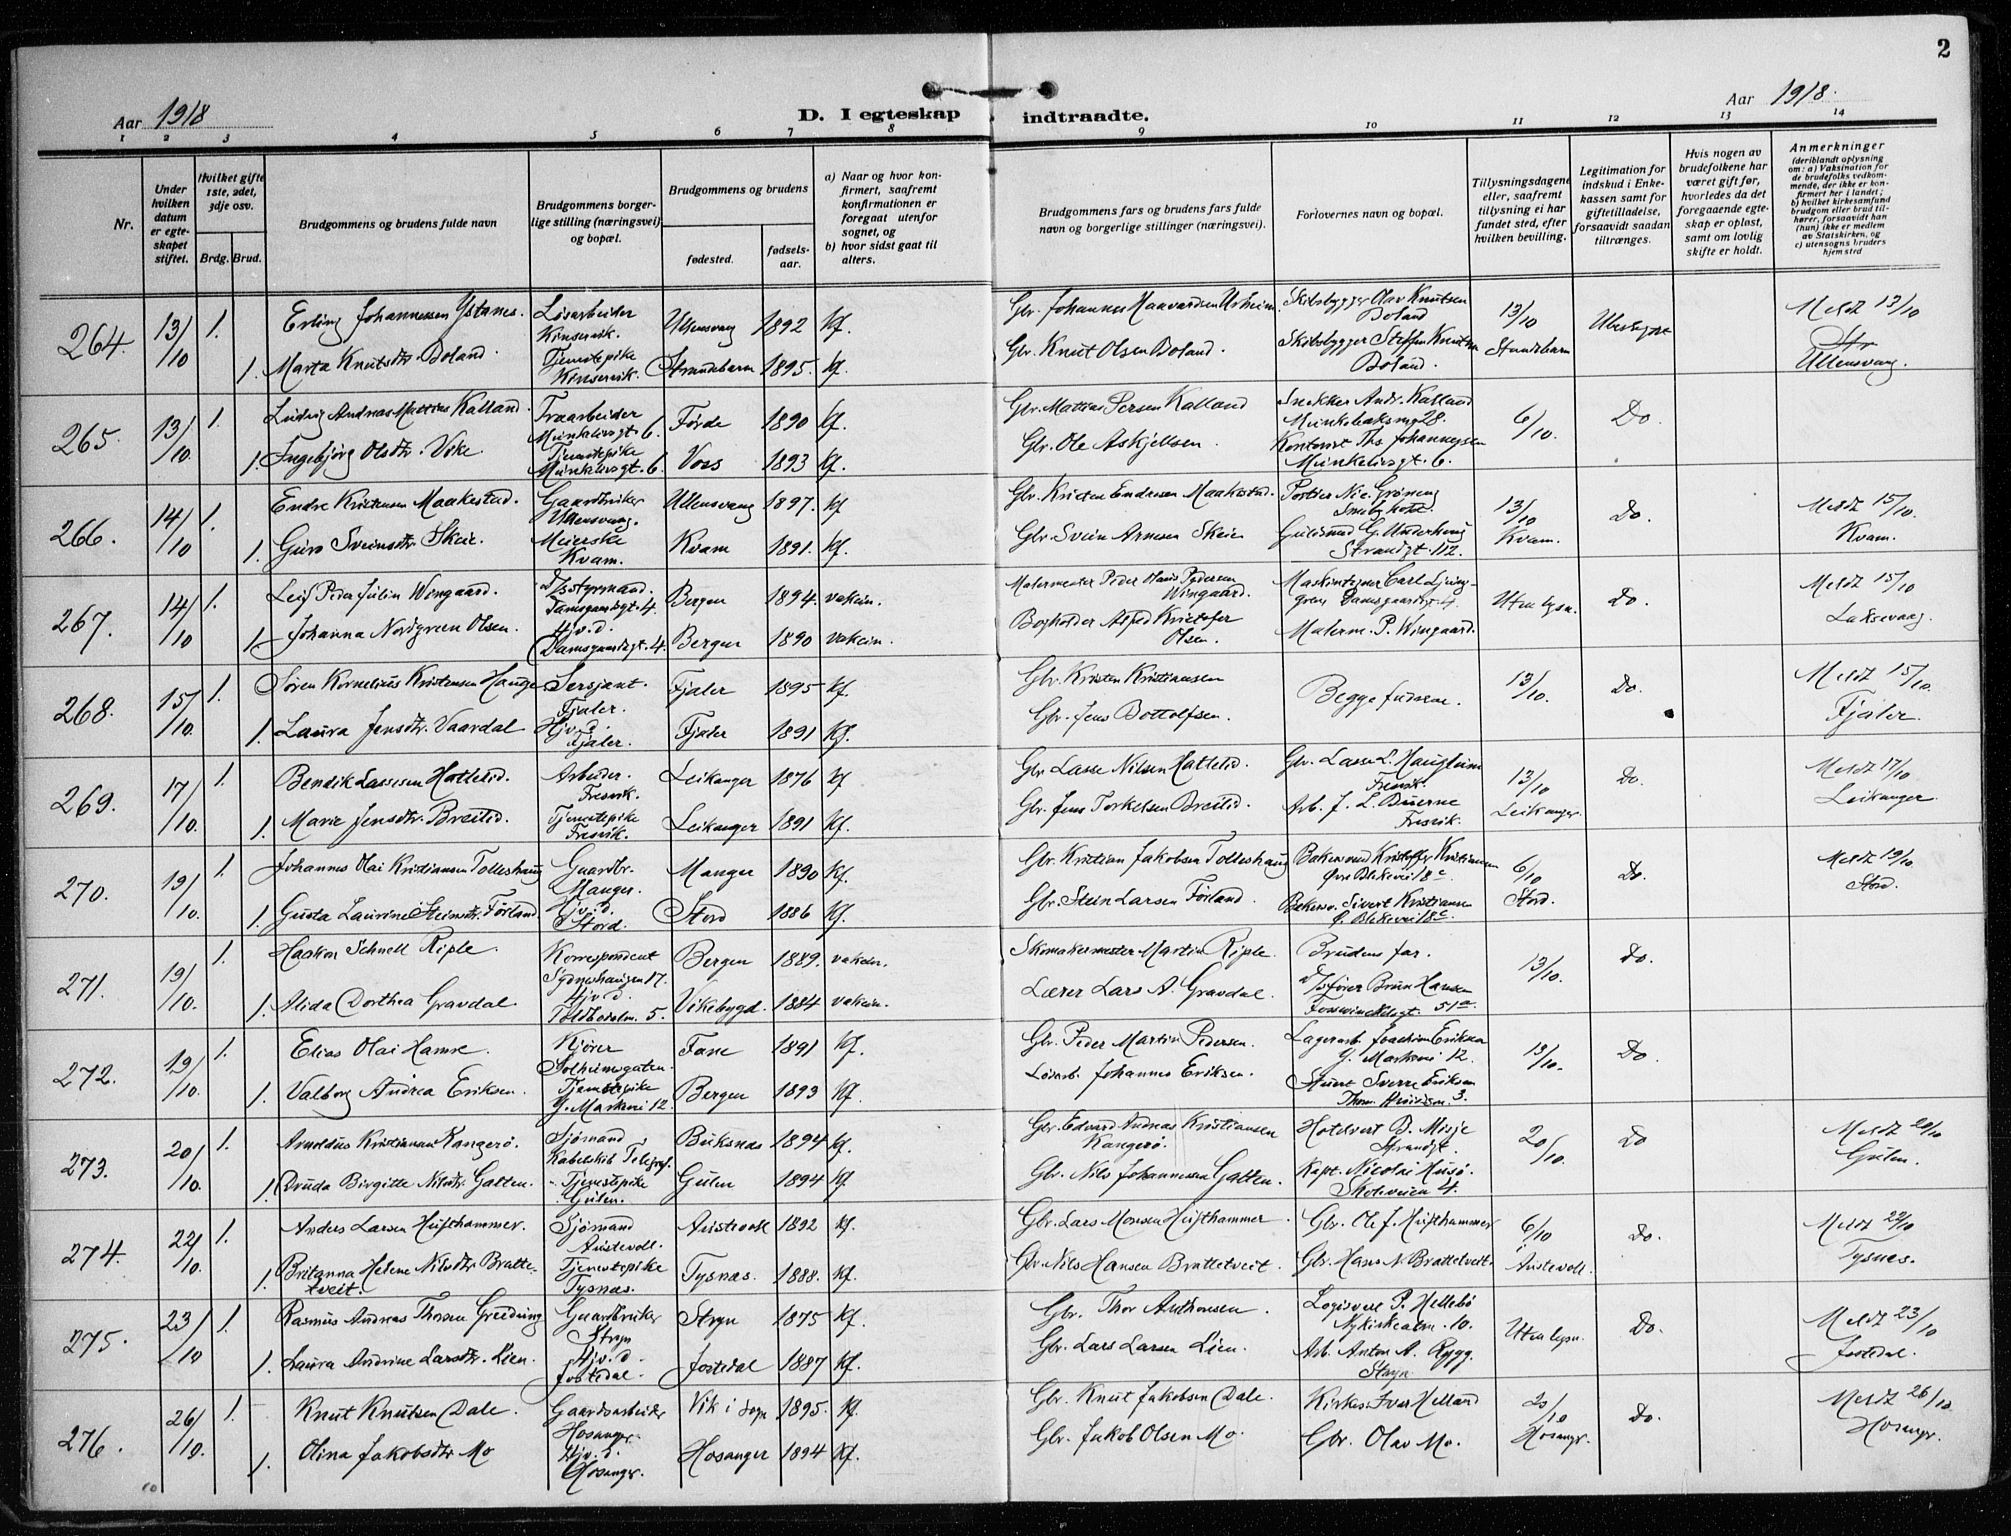 2
Aar 1918
D. I egteskap indtraadte.
Aar 1918.
1 2 3 4 5 6 7 8 9 10 11 12 13 14
Nr.
Under hvilken datum er egteskapet stiftet.
Hvilket gifte 1ste, 2det, 3dje osv.
Brdg. Brud.
Brudgommens og brudens fulde navn
Brudgommens borgerlige stilling (næringsvei) og bopæl.
Brudgommens og brudens
fødested.
fødselsaar.
a) Naar og hvor konfirmert, saafremt konfirmationen er foregaat utenfor sognet, og
b) hvor sidst gaat til alters.
Brudgommens fars og brudens fars fulde navn og borgerlige stillinger (næringsvei).
Forlovernes navn og bopæl.
Tillysningsdagene eller, saafremt tillysning ei har fundet sted, efter hvilken bevilling.
Legitimation for indskud i Enkekassen samt for giftetilladelse, forsaavidt saadan tiltrænges.
Hvis nogen av brudefolkene har været gift før, hvorledes da det foregaaende egteskap er opløst, samt om lovlig skifte er holdt.
Anmerkninger
(deriblandt oplysning om: a) Vaksination for de brudefolks vedkommende, der ikke er konfirmert her i landet; b) hvilket kirkesamfund brudgom eller brud tilhører, forsaavidt han (hun) ikke er medlem av Statskirken, og c) utensogns bruders hjemsted
264. 13/10 1. Erling Johannessen Ystanes. Løsarbeider Kinservik. Ullensvang 1892 kf. Gbr. Johannes Haavardsen Skibsbygger Olav Knutsen Boland 13/10 Strandebarm Meldt 13/10
1. Marta Knutsdtr. Boland. Tjenestepike Kinservik. Strandebarm 1895. kf. Gbr. Knut Olsen Boland. Skibsbygger Steffen Knutsen Boland. Ullensvang.
265. 13/10 1. Ludvig Andreas Mattias Kalland. Træarbeider Munkelivsgt. 6. Førde 1890 kf. Gbr. Mattias Persen Kalland Snekker Andr. Kalland 28. 6/10. Do.
1. Ingebjørg Olsdtr. Vike Tjenestepike Munkelivsgt. 6. Voss 1893 kf. Gbr. Ole Askjellsen. Kontorist Ths. Johannessen Munkelivsgt. 6.
266. 14/10 1. Endre Kristensen Maakestad. Gaardbruker Ullensvang. Ullensvang 1897. kf Gbr. Kristen Endresen Maakestad. Portier Nic. Grøning 13/10 Kvam. Do. Meldt 15/10.
1. Guro Sveinsdtr. Skeie. Meierske Kvam. Kvam 1891. kf. Gbr. Svein Arnesen Skeie Guldsmed G. Strandgt. 112. Kvam.
267. 14/10 1. Leif Peder Julin Wingaard. D/sstyrmand. Damsgaardsgt. 4. Bergen 1894. vaksin. Malermester Peder Olaus Pedersen Wingaard. Maskinteg. Carl Ljunggren Damsgaardsgt. 4. Uten lysn. Do. Meldt 15/10
1. Johanna Nordgreen Olsen. Hj.v.d. Damsgaardsgt. 4. Bergen 1890 vaksin. Bogholder Alfred Kristofer Olsen. Malerm. P. Wingaard. Laksevaag.
268. 15/10. 1. Søren Kornelius Kristensen Hauge Sersjant. Fjaler. Fjaler 1895 kf. Gbr. Kristen Kristiansen Begge fædrene. 13/10. Do. Meldt 15/10.
1. Laura Jensdtr. Vaardal Hjv.d. Fjaler. Fjaler 1891 kf. Gbr. Jens Bottolfsen. Fjaler.
269. 17/10. 1. Bendik Lassesen Hatlelid. Arbeider. Fresvik. Leikanger 1876 kf Gbr. Lasse Nilsen Hatlelid. Gbr. Lasse L. Haugheim Fresvik. 13/10 Leikanger. Do. Meldt 17/10
1. Marie Jensdtr. Breilid. Tjenestepike Fresvik. Leikanger 1891 kf. Gbr. Jens Torkelsen Breilid. Arb. J. L. Fresvik. Leikanger.
270. 19/10. 1. Johannes Olai Kristiansen Tolleshaug Gaardbr. Manger. Manger 1890 kf. Gbr. Kristian Jakobsen Tolleshaug Bakersvend Kristoffer Kristiansen Øvre Blekevei 18c 6/10 Stord. Do. Meldt 19/10
1. Gusta Laurine Steinsdtr. Førland. Hjv.d. Stord. Stord 1886 kf. Gbr. Stein Larsen Førland. Bakersv. Sivert Kristiansen Ø. Blekevei 18c. Stord.
271. 19/10. 1. Haakon Schnell Riple. Korrespondent Sydneshaugen 17. Bergen 1889. vaksin. Skomakermester Martin Riple. Brudens far. 13/10. Do.
1. Alida Dorthea Gravdal Hjv.d. Toldbodalm. 5. Vikebygd. 1884 vaksin. Lærer Lars A. Gravdal. D/sfører Brun Hansen Fosswinckelsgt. 51a.
272. 19/10. 1. Elias Olai Hamre. Kjører Solheimsgaten. Fane 1891 kf. Gbr. Peder Martin Pedersen. Lagerarb. Joachim Eriksen Y. Markevei 12. 13/10. Do.
1. Valborg Andrea Eriksen. Tjenestepike Y. Markevei 12. Bergen 1893 kf. Løsarb. Johannes Eriksen. Stuert Sverre Eriksen 3.
273. 20/10. 1. Arnoldus Kristiansen Kangerø. Sjømand Kabelskib Telegraf. Buksnes 1894 kf. Gbr. Edvard Andreas Kristiansen Kangerø. Hotelvert D. Misje Strandgt. 20/10. Do Meldt 20/10
1. Druda Birgitte Nilsdtr. Galten. Tjenestepike Gulen. Gulen 1894 kf. Gbr. Nils Johannessen Galten. Kapt. Nicolai Husø. Skoleveien 4. Gulen.
274. 22/10. 1. Anders Larsen Hufthammer. Sjømand Austevoll. Austevoll 1892 kf. Gbr. Lars Monsen Hufthammer. Gbr. Ole J. Hufthammer 6/10 i Austevoll. Do. Meldt 22/10
1. Britanna Helene Nilsdtr. Brattetveit. Tjenestepike Tysnæs. Tysnæs. 1888. kf. Gbr. Nils Hansen Brattetveit. Gbr. Hans N. Brattetveit. Tysnes.
275. 23/10 1. Rasmus Andreas Thorsen Greidung Gaardbruker Stryn Stryn 1875 kf. Gbr. Thor Anthonsen. Logisvert P. Hellebø Nykirkealm. 10. Uten lysn. Do. Meldt 23/10
1. Laura Andrine Larsdtr. Lien. Hjv.d. Jostedal. Jostedal 1887 kf. Gbr. Lars Larsen Lien. Arb. Anton A. Rygg. Stryn Jostedal.
276. 26/10. 1. Knut Knutsen Dale. Gaardsarbeider Hosanger Vik i Sogn 1895. kf. Gbr. Knut Jakobsen Dale. Iver Helland 20/10 Hosangr. Do. Meldt 26/10.
1. Olina Jakobsdtr. Mo Hjv.d. Hosanger. Hosanger 1894 kf. Gbr. Jakob Olsen Mo. Gbr. Olav Mo. Hosangr.